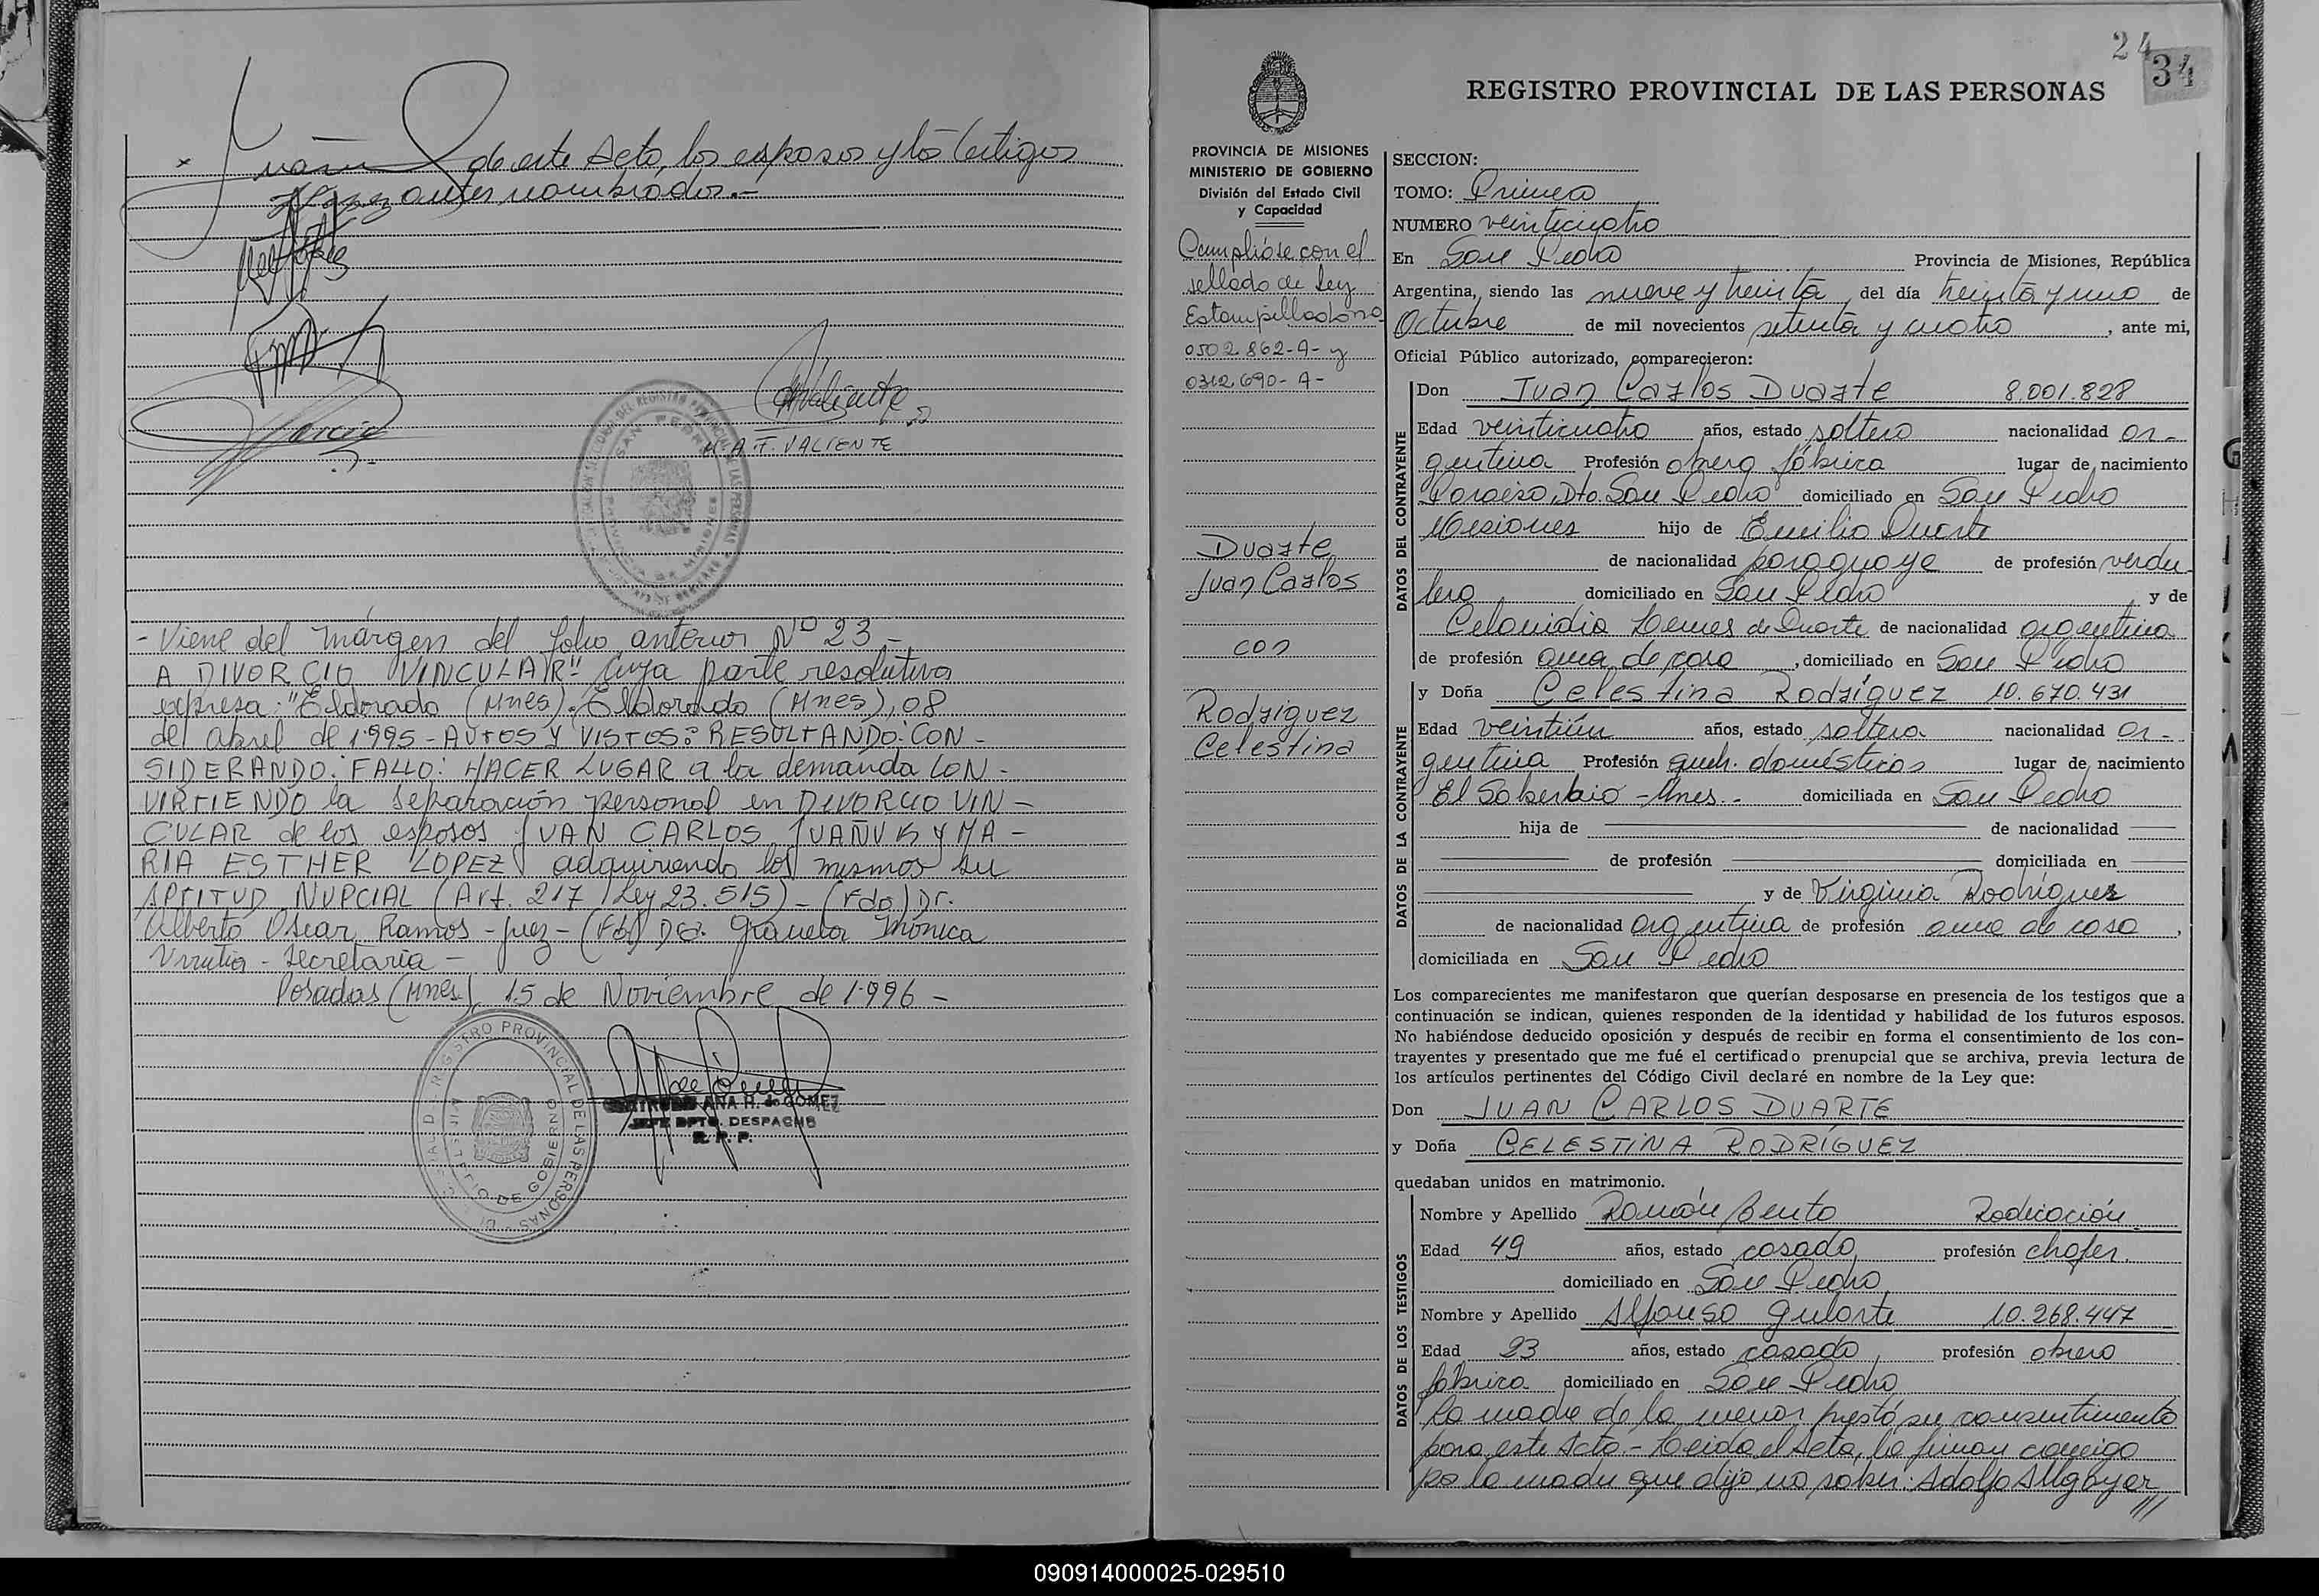 de este Acto, los esposos y los testigos
antes nombrados.-
M. A. F. VALIENTE
SAN PEDRO
- Viene del márgen del folio anterior Nº 23 -
A DIVORCIO VINCULAR" Cuya parte resolutiva
expresa: "Eldorado (Mnes). Eldorado (Mnes), 08
del abril de 1.995 - AUTOS Y VISTOS: RESULTANDO: CON -
SIDERANDO: FALLO: HACER LUGAR a la demanda CON -
VIRTIENDO la Separación personal en DIVORCIO VIN -
CULAR de los esposos JUAN CARLOS YUAÑUK y MA -
RIA ESTHER LOPEZ adquiriendo los mismos su
APTITUD NUPCIAL (Art. 217 Ley 23.515) - (Fdo) Dr.
Alberto Oscar Ramos - Juez - (Fdo) Dra. Graciela Mónica
Urrutia - Secretaria -
Posadas (Mnes) 15 de Noviembre de 1.996 -
ANA H. de GOMEZ
JEFE DPTO. DESPACHO
R. P. P.
24
34
REGISTRO PROVINCIAL DE LAS PERSONAS
PROVINCIA DE MISIONES
MINISTERIO DE GOBIERNO
División del Estado Civil
y Capacidad
Cumplióse con el
sellado de Ley
0502.862-A- y
0312.690-A-
Duarte
Juan Carlos
con
Rodríguez
Celestina
SECCION:
TOMO: Primero
NUMERO veinticuatro
En San Pedro Provincia de Misiones, República
Argentina, siendo las nueve y treinta del día treinta y uno de
Octubre de mil novecientos setenta y cuatro, ante mi,
Oficial Público autorizado, comparecieron:
DATOS DEL CONTRAYENTE
Don Juan Carlos Duarte 8.001.828
Edad veinticuatro años, estado soltero nacionalidad ar-
gentina Profesión obrero fábrica lugar de nacimiento
Paraíso, Dto. San Pedro domiciliado en San Pedro
Misiones hijo de Emilio Duarte
de nacionalidad paraguaya de profesión verdu-
lero domiciliado en San Pedro y de
Celanidia Lemes de Duarte de nacionalidad argentina
de profesión ama de casa, domiciliado en San Pedro
DATOS DE LA CONTRAYENTE
y Doña Celestina Rodríguez 10.670.431
Edad veintiún años, estado soltera nacionalidad ar-
gentina Profesión queh. domésticos lugar de nacimiento
El Soberbio - Mnes.- domiciliada en San Pedro
hija de de nacionalidad
de profesión domiciliada en
y de Virginia Rodríguez
de nacionalidad argentina de profesión ama de casa,
domiciliada en San Pedro
Los comparecientes me manifestaron que querían desposarse en presencia de los testigos que a
continuación se indican, quienes responden de la identidad y habilidad de los futuros esposos.
No habiéndose deducido oposición y después de recibir en forma el consentimiento de los con-
trayentes y presentado que me fué el certificado prenupcial que se archiva, previa lectura de
los artículos pertinentes del Código Civil declaré en nombre de la Ley que:
Don JUAN CARLOS DUARTE
y Doña CELESTINA RODRÍGUEZ
quedaban unidos en matrimonio.
DATOS DE LOS TESTIGOS
Nombre y Apellido Ramón Bento Radicación
Edad 49 años, estado casado, profesión chofer.
domiciliado en San Pedro
Nombre y Apellido Alfonso Gularte 10.268.447
Edad 23 años, estado casado, profesión obrero
fábrica domiciliado en San Pedro
La madre de la menor prestó su consentimiento
para este Acto.- Leída el Acta, la firman conmigo
por la madre que dijo no saber: Adolfo
090914000025-029510